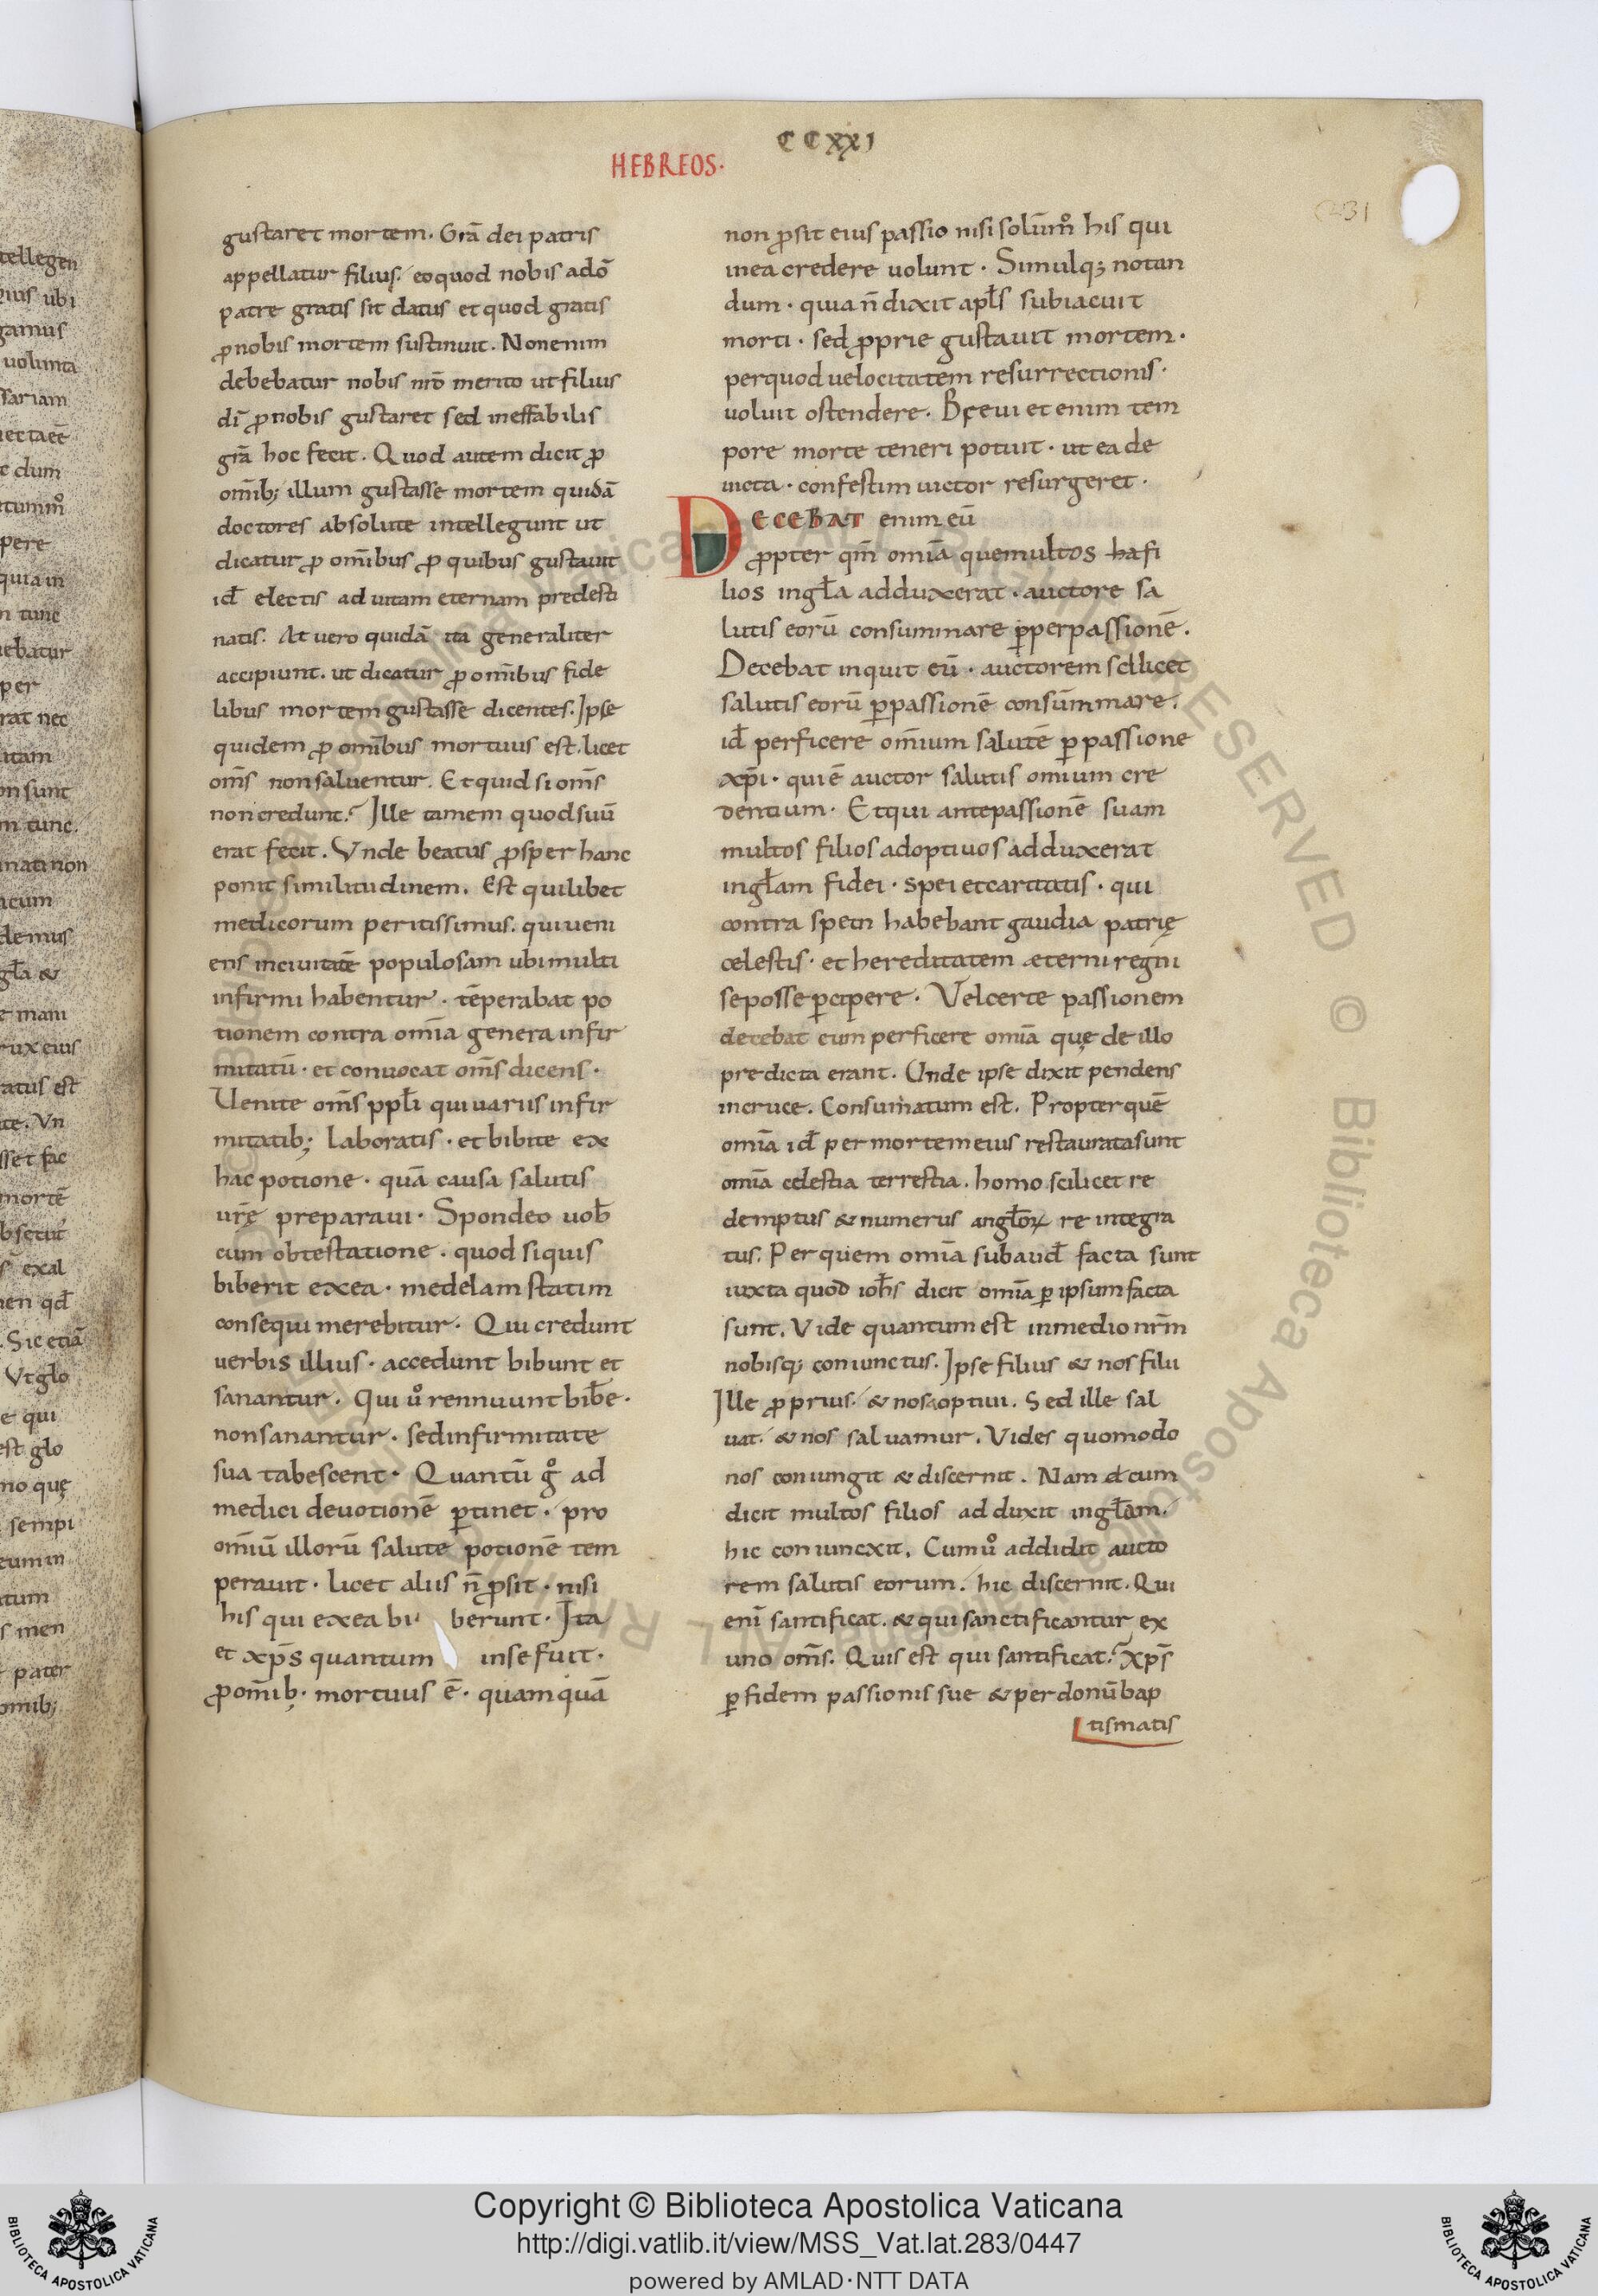 CCXXI
HEBREOS.
231
gustaret mortem. Grā dei patris
appellatur filius. eoquod nobis adō
patre gratis sit datus et quod gratis
ꝓnobis mortem sustinuit. Non enim
debebatur nobis nr̄o merito ut filius
dī ꝓ nobis gustaret sed ineffabilis
grā hoc fecit. Quod autem dicit ꝓ
om̄ib; illum gustasse mortem quidā
doctores absolute intellegunt ut
dicatur ꝓ om̄ibus ꝓ quibus gustauit
id̄ electis ad uitam eternam predesti
natis. At uero quidā ita generaliter
accipiunt. ut dicatur ꝓ om̄ibus fide
libus mortem gustasse dicentes. Ipse
quidem ꝓ om̄ibus mortuus est. licet
om̄s non saluentur. Et quid si om̄s
non credunt? Ille tamen quod suū
erat fecit. Vnde beatus ꝓsper hanc
ponit similitudinem. Est quilibet
medicorum peritissimus. qui ueni
ens inciuitatē populosam ubi multi
infirmi habentur. tēperabat po
tionem contra om̄ia genera infir
mitatū. et conuocat om̄s dicens.
Uenite om̄s ppl̄i qui uariis infir
mitatib; laboratis. et bibite ex
hac potione. quā causa salutis
ur̄ę preparaui. Spondeo uob̄
cum obtestatione. quod siquis
biberit exea. medelam statim
consequi merebitur. Qui credunt
uerbis illius. accedunt bibunt et
sanantur. Qui ů rennuunt bib̄e.
non sanantur. sed infirmitate
sua tabescent. Quantū g̊ ad
medici deuotionē ꝑtinet. pro
om̄iū illorū salute potionē tem
perauit. licet aliis n̄ ꝓsit. nisi
his qui exea bi berunt. Ita
et xp̄s quantum inse fuit.
ꝓom̄ib; mortuus ē. quamquā
non ꝓsit eius passio nisi solūm̊ his qui
inea credere uolunt. Simulq; notan
dum. quia n̄ dixit apl̄s subiacuit
morti. sed ꝓprie gustauit mortem.
per quod uelocitatem resurrectionis.
uoluit ostendere. Breui et enim tem
pore morte teneri potuit. ut ea de
uicta. confestim uictor resurgeret.
DECEBAT enim eū
ꝓpter qm̄ omīa quemultos hafi
lios ingl̄a adduxerat. auctore sa
lutis eorū consummare ꝑperpassionē.
Decebat inquit eū. auctorem scilicet
salutis eorū ꝑpassionē consūmmare.
id̄ perficere om̄ium salutē ꝑ passione
xp̄i. qui ē auctor salutis omium cre
dentium. Et qui antepassionē suam
multos filios adoptiuos adduxerat
ingl̄am fidei. spei et caritatis. qui
contra spem habebant gaudia patrię
cęlestis. et hereditatem æterni regni
seposse ꝑcipere. Vel certe passionem
decebat eum perficere omīa quę de illo
predicta erant. Unde ipse dixit pendens
incruce. Consumatum est. Propter quē
omīa id̄ per mortem eius restaurata sunt
omīa celestia terrestia. homo scilicet re
demptus & numerus angl̄oꝝ re integra
tus. Per quem omīa subaud̄ facta sunt
iuxta quod ioh̄s dicit omīa ꝑ ipsum facta
sunt. Vide quantum est inmedio nr̄m
nobisq; coniunctus. Ipse filius & nos filii
Ille ꝓprius. & nos aoptiui. Sed ille sal
uat. & nos saluamur. Vides quomodo
nos coniungit & discernit. Nam & cum
dicit multos filios adduxit ingl̄am.
hic coniunexit. Cum ů addidit aucto
rem salutis eorum. hic discernit. Qui
enī santificat. & qui sanctificantur ex
uno om̄s. Quis est qui santificat? xp̄s
ꝑ fidem passionis sue & per donū bap
tismatis
Copyright © Biblioteca Apostolica Vaticana
http://digi.vatlib.it/view/MSS_Vat.lat.283/0447
powered by AMLAD·NTT DATA
BIBLIOTECA APOSTOLICA VATICANA
BIBLIOTECA APOSTOLICA VATICANA